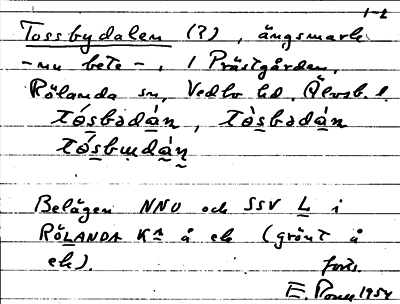 1-2
Tossbydalen (?), ängsmark
- nu bete -, i Prästgården,
Rölanda sn, Vedbo hd, Älvsb. l.
tåsbədàn, tòsbədàn
tåsbɯdàn
Belägen NNO och SSV L i
RÖLANDA Ka å ek (grönt å
ek). forts.
E. 1954